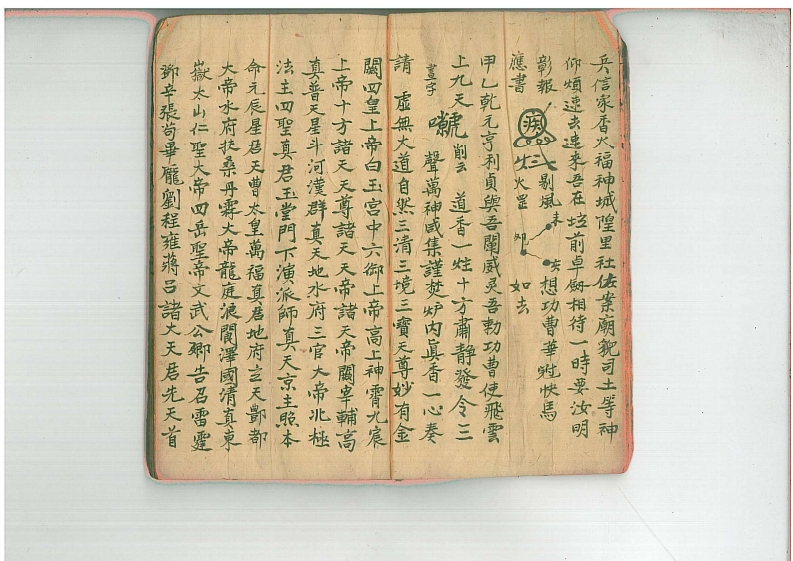 兵信家香火福神城隍里社佐案廟貌司土等神
仰煩速去速來吾在壇前卓劍相待一時要汝明
彰報 剔風 未 亥 想功曹華 快馬
應書 疾 火罡 卯 如去
甲乙乾元亨利貞與吾闡威灵吾勅功曹使飛雲
上九天 削云 道香一炷十方肅静發令三
畫字 聲萬神咸集謹焚炉内真香一心奏
請 虛無大道自然三清三境三寶天尊妙有金
闕四皇上帝白玉宮中六御上帝高上神霄九宸
上帝十方諸天天尊諸天天帝諸天帝闕宰輔高
真普天星斗河漢群真天地水府三官大帝北極
法主四聖真君玉堂門下演派師真天京主照本
命元辰星君天曹太皇萬福真君地府立天酆都
大帝水府扶桑丹霖大帝龍庭浪閬澤國清真東
嶽太山仁聖大帝四岳聖帝文武公卿告召雷霆
鄧辛張苟畢龐劉程雍蔣呂諸大天君先天首